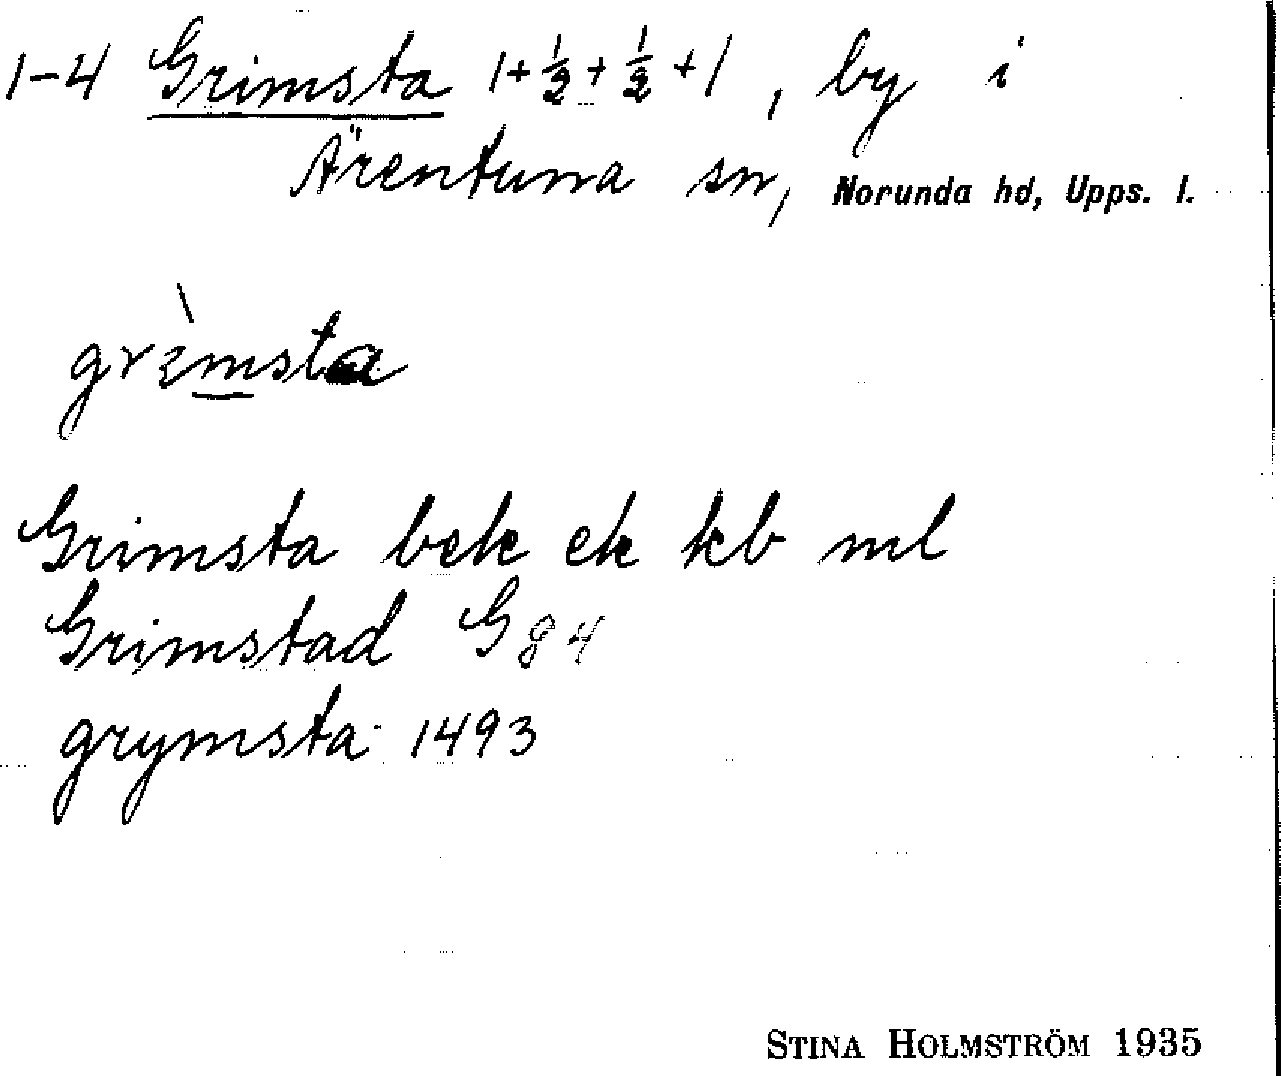 1-4 Grimsta 1+½+½+1, by i
Ärentuna sn, Norunda hd, Upps. l.
grìmsta
Grimsta bek ek kb ml
Grimstad G 84
grymsta 1493
STINA HOLMSTRÖM 1935